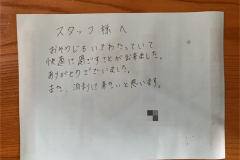 スタッフ様へ
おそうじもいきわたっていて
快適に過ごすことが出来ました。
ありがとうございました。
また、泊りに来たいと思います。